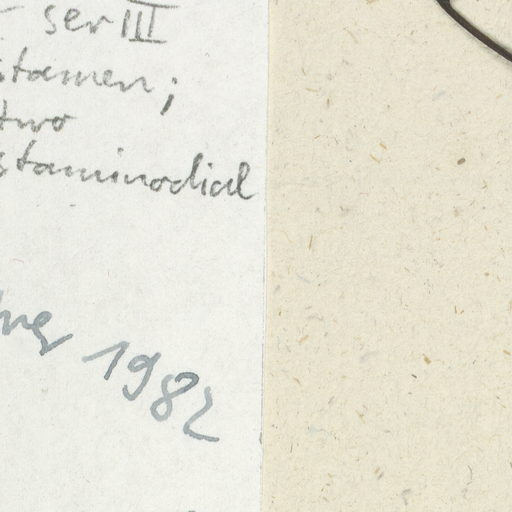 ser III
stamen;
two
staminodial
1982